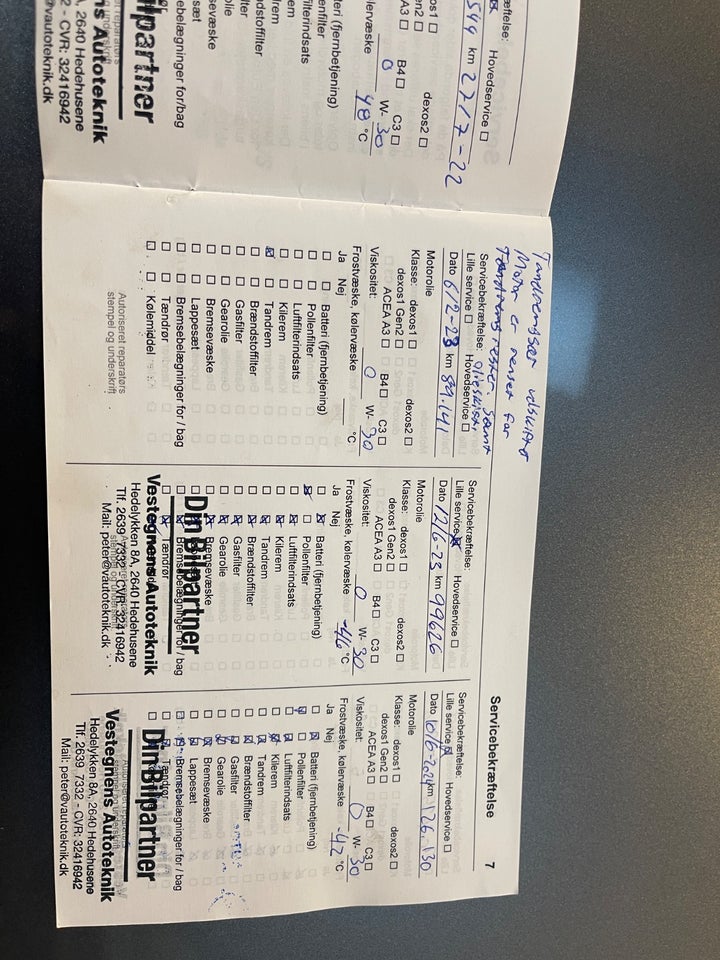 æftelse:
Hovedservice ☐
km 27/7-22
os1 ☐
dexos2 ☐
en2 ☐
A3 ☐ B4 ☐ C3 ☐
0 W- 30
ølervæske 48 °C
tteri (fjernbetjening)
llenfilter
filterindsats
erem
em
dstoffilter
ter
rolie
sevæske
sæt
ebelægninger for/bag
ilpartner
ns Autoteknik
A, 2640 Hedehusene
2 - CVR: 32416942
@vautoteknik.dk
Servicebekræftelse 7
Tandremssæt udskiftet
Motor er renset for
Tandrems rester. Samt
Servicebekræftelse: oliesi
Lille service ☐ Hovedservice ☐
Dato 6/2-23 km 89.141
Motorolie
Klasse: dexos1 ☐ dexos2 ☐
dexos1 Gen2 ☐
ACEA A3 ☐ B4 ☐ C3 ☐
Viskositet: 0 W- 30
Frostvæske, kølervæske °C
Ja Nej
☐ ☐ Batteri (fjernbetjening)
☐ ☐ Pollenfilter
☐ ☐ Luftfilterindsats
☐ ☐ Kilerem
☒ ☐ Tandrem
☐ ☐ Brændstoffilter
☐ ☐ Gasfilter
☐ ☐ Gearolie
☐ ☐ Bremsevæske
☐ ☐ Lappesæt
☐ ☐ Bremsebelægninger for / bag
☐ ☐ Tændrør
☐ ☐ Kølemiddel
Autoriseret reparatørs
stempel og underskrift
Servicebekræftelse:
Lille service ☒ Hovedservice ☐
Dato 12/6-23 km 99626
Motorolie
Klasse: dexos1 ☐ dexos2 ☐
dexos1 Gen2 ☐
ACEA A3 ☐ B4 ☐ C3 ☐
Viskositet: 0 W- 30
Frostvæske, kølervæske -46 °C
Ja Nej
☐ ☒ Batteri (fjernbetjening)
☒ ☐ Pollenfilter
☐ ☒ Luftfilterindsats
☐ ☒ Kilerem
☐ ☒ Tandrem
☐ ☒ Brændstoffilter
☐ ☒ Gasfilter
☐ ☒ Gearolie
☐ ☒ Bremsevæske
☐ ☒ Bremsebelægninger for / bag
☐ ☒ Tændrør
Din Bilpartner
Vestegnens Autoteknik
Hedelykken 8A, 2640 Hedehusene
Tlf. 2639 7332 - CVR: 32416942
Mail: peter@vautoteknik.dk
Servicebekræftelse:
Lille service ☒ Hovedservice ☐
Dato 10/6-2024 km 126.130
Motorolie
Klasse: dexos1 ☐ dexos2 ☐
dexos1 Gen2 ☐
ACEA A3 ☐ B4 ☐ C3 ☐
Viskositet: 0 W- 30
Frostvæske, kølervæske -42 °C
Ja Nej
☐ ☒ Batteri (fjernbetjening)
☒ ☐ Pollenfilter
☐ ☒ Luftfilterindsats
☐ ☒ Kilerem
☐ ☒ Tandrem
☐ ☒ Brændstoffilter
☐ ☒ Gasfilter
☐ ☒ Gearolie
☐ ☒ Bremsevæske
☐ ☒ Lappesæt
☐ ☒ Bremsebelægninger for / bag
☐ ☒ Tændrør
Din Bilpartner
Vestegnens Autoteknik
Hedelykken 8A, 2640 Hedehusene
Tlf. 2639 7332 - CVR: 32416942
Mail: peter@vautoteknik.dk